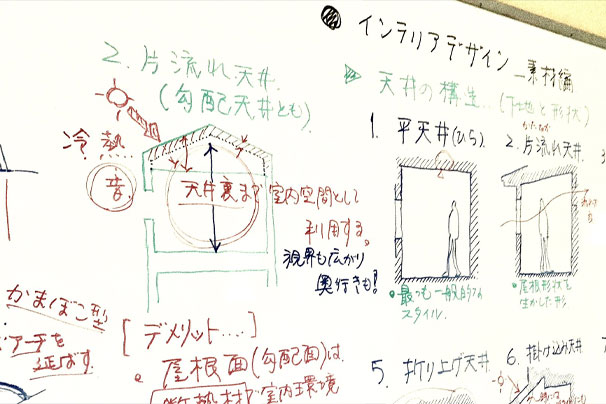 ●インテリアデザイン―素材編
▶天井の構造…(下地と形状)
1. 平天井(ひら)
かたながれ
2. 片流れ天井.
●最も一般的な
スタイル.
●屋根形状を
生かした形
5. 折り上げ天井
6. 掛け込み天井
2. 片流れ天井.
(勾配天井とも)
冷 熱…
音
天井裏まで室内空間として
利用する。
視界も広がり
奥行きも!
かまぼこ型
アーチを
延ばす.
[デメリット……]
●屋根面(勾配面)は、
断熱材で室内環境